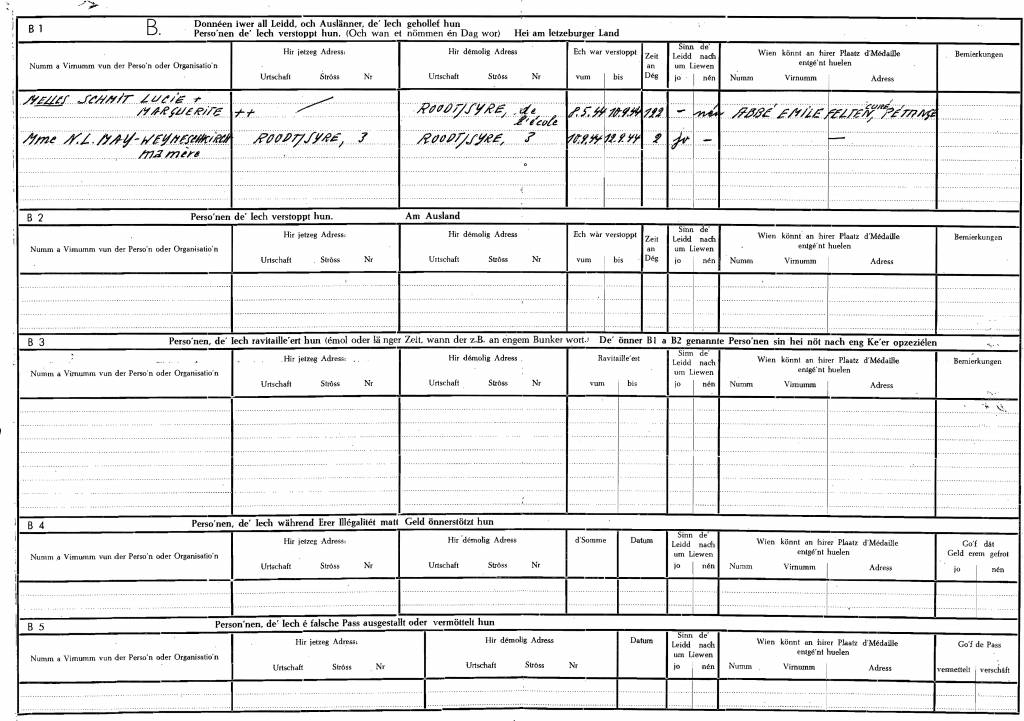 B 1 B. Donnéen iwer all Leidd, och Auslänner, de' Iech gehollef hun
Perso'nen de' Iech verstoppt hun. (Och wan et nömmen én Dag wor) Hei am letzeburger Land
Numm a Virnumm vun der Perso'n oder Organisatio'n Hir jetzeg Adress: Urtschaft Ströss Nr Hir démolig Adress Urtschaft Ströss Nr Ech war verstoppt vum bis Zeit an Dég Sinn de' Leidd nach um Liewen jo nén Wien könnt an hirer Plaatz d'Médaille entgé'nt huelen Numm Virnumm Adress Bemierkungen
MELLES SCHMIT LUCIE + MARGUERITE ++ ROODT/SYRE, de l'école 8.5.44 10.9.44 122 - nén ABBÉ EMILE FELTEN, CURÉ, PÉTANGE
Mme N.L. MAY-WEYNESCHKIRCH ma mère ROODT/SYRE, 3 ROODT/SYRE, 3 10.9.44 12.9.44 2 jo - —
B 2 Perso'nen de' Iech verstoppt hun. Am Ausland
Numm a Virnumm vun der Perso'n oder Organisatio'n Hir jetzeg Adress: Urtschaft Ströss Nr Hir démolig Adress Urtschaft Ströss Nr Ech wär verstoppt vum bis Zeit an Dég Sinn de' Leidd nach um Liewen jo nén Wien könnt an hirer Plaatz d'Médaille entgé'nt huelen Numm Virnumm Adress Bemierkungen
B 3 Perso'nen, de' Iech ravitaille'ert hun (émol oder länger Zeit, wann der z.B. an engem Bunker wort.) De' önner B1 a B2 genannte Perso'nen sin hei nöt nach eng Ke'er opzeziélen
Numm a Virnumm vun der Perso'n oder Organisatio'n Hir jetzeg Adress: Urtschaft Ströss Nr Hir démolig Adress Urtschaft Ströss Nr Ravitaille'ert vum bis Sinn de' Leidd nach um Liewen jo nén Wien könnt an hirer Plaatz d'Médaille entgé'nt huelen Numm Virnumm Adress Bemierkungen
B 4 Perso'nen, de' Iech während Erer Illégalitét matt Geld önnerstötzt hun
Numm a Virnumm vun der Perso'n oder Organisatio'n Hir jetzeg Adress: Urtschaft Ströss Nr Hir démolig Adress Urtschaft Ströss Nr d'Somme Datum Sinn de' Leidd nach um Liewen jo nén Wien könnt an hirer Plaatz d'Médaille entgé'nt huelen Numm Virnumm Adress Go'f dät Geld erem gefrot jo nén
B 5 Person'nen, de' Iech é falsche Pass ausgestallt oder vermöttelt hun
Numm a Virnumm vun der Perso'n oder Organisatio'n Hir jetzeg Adress: Urtschaft Ströss Nr Hir démolig Adress Urtschaft Ströss Nr Datum Sinn de' Leidd nach um Liewen jo nén Wien könnt an hirer Plaatz d'Médaille entgé'nt huelen Numm Virnumm Adress Go'f de Pass vermettelt verschäft